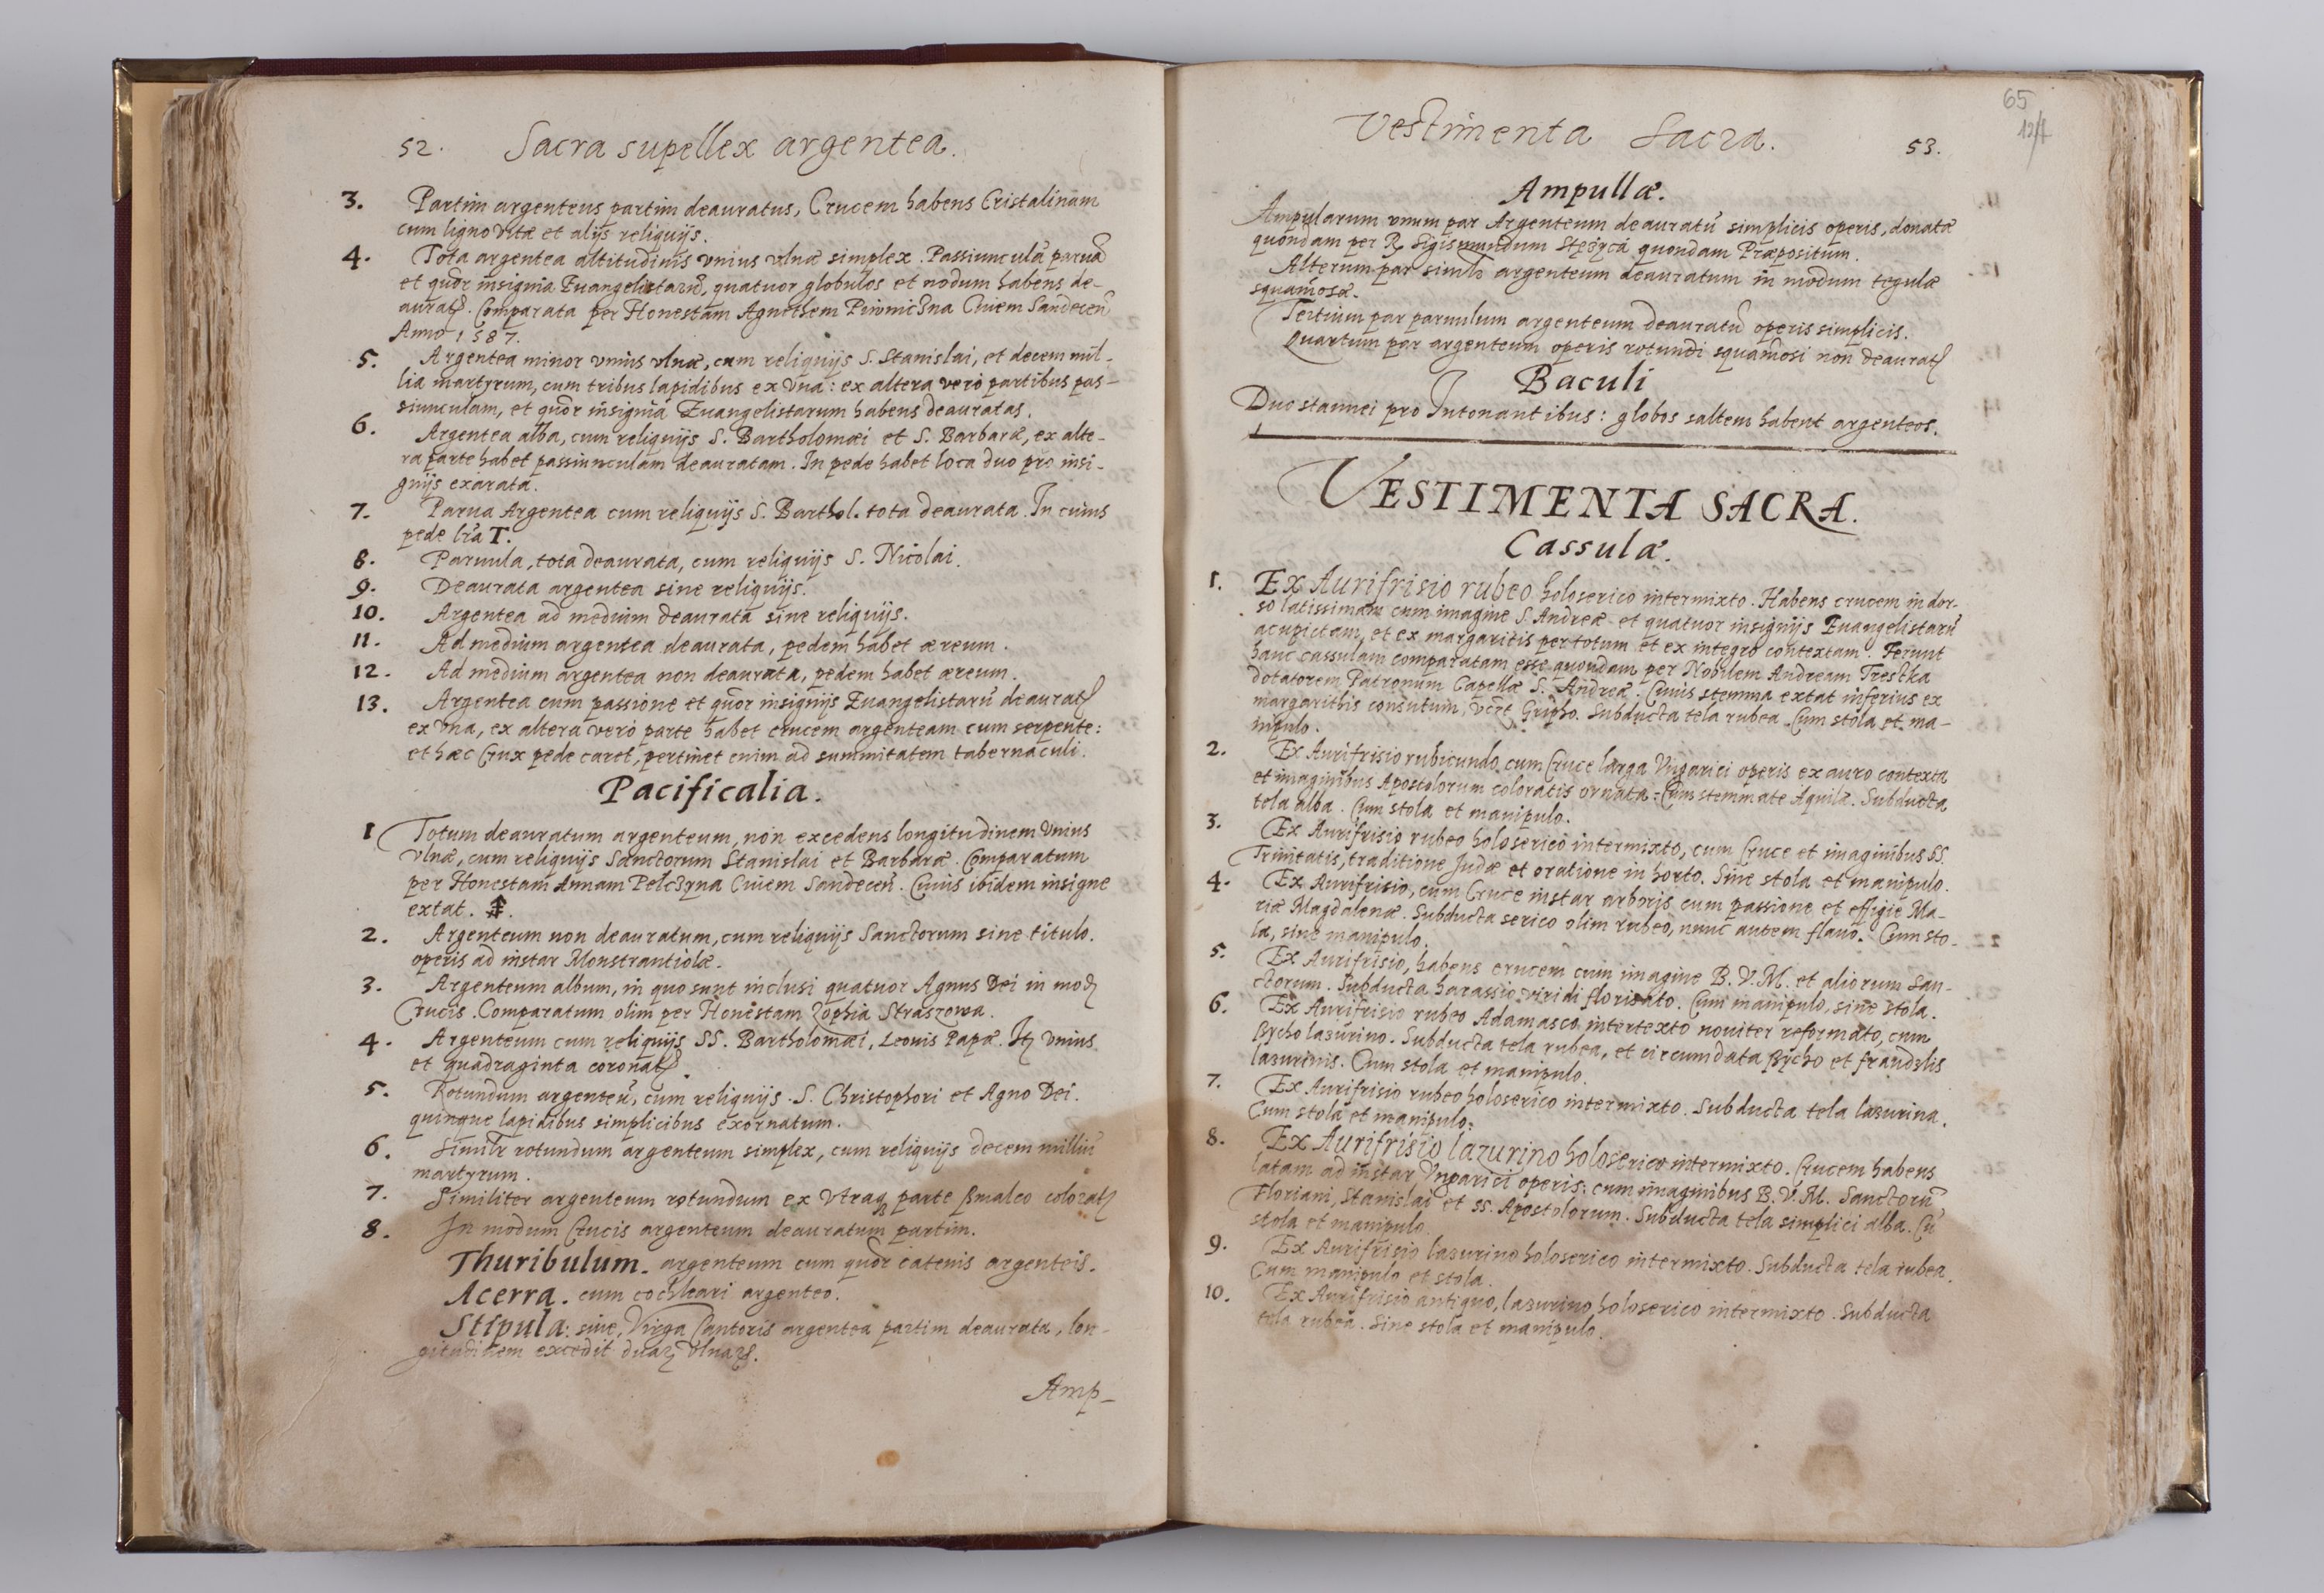 52. Sacra supellex argentea.
3. Partim argenteus partim deauratus, Crucem habens Cristalinam
cum ligno vitæ et alijs reliquijs.
4. Tota argentea altitudinis vnius vlnæ simplex. Passiunculā paruā
et quōr insignia Euangelistarū, quatuor globulos et nodum habens de-
aurat. Comparata per Honestam Agnethem Ciuem Sandecen̄
Anno 1587.
5. Argentea minor vnius vlnæ, cum reliquijs S. Stanislai, et decem mil-
lia martyrum, cum tribus lapidibus ex vna: ex altera vero partibus pas-
siunculam, et quōr insignia Euangelistarum habens deauratas.
6. Argentea alba, cum reliquijs S. Bartholomæi et S. Barbaræ, ex alte-
ra parte habet passiunculam deauratam. In pede habet loca duo pro insi-
gnijs exarata.
7. Parua Argentea cum reliquijs S. Barthol. tota deaurata. In cuius
pede lr̄a T.
8. Paruula, tota deaurata, cum reliquijs S. Nicolai.
9. Deaurata argentea sine reliquijs.
10. Argentea ad medium deaurata sine reliquijs.
11. Ad medium argentea deaurata, pedem habet æreum.
12. Ad medium argentea non deaurata, pedem habet æreum.
13. Argentea cum passione et quōr insignijs Euangelistarū deaurat
ex vna, ex altera vero parte habet crucem argenteam cum serpente:
et hæc Crux pede caret, pertinet enim ad summitatem tabernaculi.
Pacificalia.
1 Totum deauratum argenteum, non excedens longitudinem vnius
vlnæ, cum reliquijs Sanctorum Stanislai et Barbaræ. Comparatum
per Honestam Annam Pełczqna Ciuem Sandecen̄. Cuius ibidem insigne
extat.
2. Argenteum non deauratum, cum reliquijs Sanctorum sine titulo.
operis ad instar Monstrantiolæ.
3. Argenteum album, in quo sunt inclusi quatuor Agnus Dei in mod
Crucis. Comparatum olim per Honestam Zophia Straszowa.
4. Argenteum cum reliquijs SS. Bartholomæi, Leonis Papæ. It vnius
et quadraginta coronat.
5. Rotundum argenteū, cum reliquijs S. Christophori et Agno Dei.
quinque lapidibus simplicibus exornatum.
6. Similr rotundum argenteum simplex, cum reliquijs decem milliū
martyrum.
7. Similiter argenteum rotundum ex vtraq parte ßmalco colorat
8. In modum Crucis argenteum deauratum partim.
Thuribulum. argenteum cum quōr catenis argenteis.
Acerra. cum cochleari argenteo.
Stipula: siue, Virga Cantoris argentea partim deaurata, lon-
gitudinem excedit duaꝝ vlnaꝝ.
Amp-
Vestimenta Sacra. 53.
65
Ampullæ.
Ampularum vnum par Argenteum deauratū simplicis operis, donatæ
quondam per R. Sigismundum quondam Præpositum.
Alterum par simile argenteum deauratum in modum tegulæ
squamosæ.
Tertium par paruulum argenteum deauratū operis simplicis.
Quartum par argenteum operis rotundi squamosi non deaurat
Baculi
Duo stannei pro Intonantibus: globos saltem habent argenteos.
VESTIMENTA SACRA.
Cassulæ.
1. Ex Aurifrisio rubeo holoserico intermixto. Habens crucem in dor-
so latissimam cum imagine S. Andreæ et quatuor insignijs Euangelistarū
acupictam, et ex margaritis per totum et ex integro contextam. Ferunt
hanc cassulam comparatam esse quondam per Nobilem Andream Trestka
dotatorem Patronum Capellæ S. Andreæ. Cuius stemma extat inferius ex
margarithis consutum, vt Gripho. Subducta tela rubea. Cum stola et ma-
nipulo.
2. Ex Aurifrisio rubicundo cum Cruce larga Vngarici operis ex auro contexta
et imaginibus Apostolorum coloratis ornata: Cum stemmate Aquilæ. Subducta
tela alba. Cum stola et manipulo.
3. Ex Aurifrisio rubeo holoserico intermixto, cum Cruce et imaginibus SS.
Trinitatis, traditione Judæ et oratione in horto. Sine stola et manipulo.
4. Ex Aurifrisio, cum Cruce instar arboris cum passione et effigie Ma-
riæ Magdalenæ. Subducta serico olim rubeo, nunc autem flauo. Cum sto-
la, sine manipulo.
5. Ex Aurifrisio, habens crucem cum imagine B. V. M. et aliorum San-
ctorum. Subducta harassio viridi floriento. Cum manipulo, sine stola.
6. Ex Aurifrisio rubeo Adamasco intertexto nouiter reformato, cum
ßycho lasurino. Subducta tela rubea, et circumdata ßycho et frandzlis
lasurinis. Cum stola et manipulo.
7. Ex Aurifrisio rubeo holoserico intermixto. Subducta tela lasurina.
Cum stola et manipulo.
8. Ex Aurifrisio lazurino holoserico intermixto. Crucem habens
latam ad instar Vngarici operis: cum imaginibus B. V. M. Sanctorū
Floriani, Stanislai et SS. Apostolorum. Subducta tela simplici alba. Cū
stola et manipulo.
9. Ex Aurifrisio lasurino holoserico intermixto. Subducta tela rubea.
Cum manipulo et stola.
10. Ex Aurifrisio antiquo, lasurino holoserico intermixto. Subducta
tela rubea. Sine stola et manipulo.